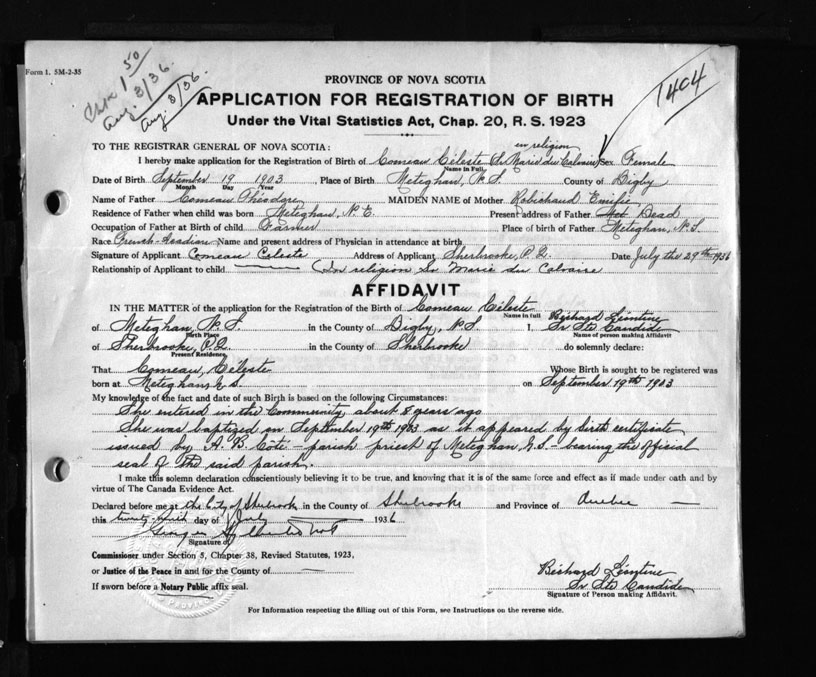 Form 1. 5M-2-35
1.50
Aug. 3/36.
Aug. 3/36.
1404
PROVINCE OF NOVA SCOTIA
APPLICATION FOR REGISTRATION OF BIRTH
Under the Vital Statistics Act, Chap. 20, R. S. 1923
TO THE REGISTRAR GENERAL OF NOVA SCOTIA:
in religion
I hereby make application for the Registration of Birth of Comeau Céleste (Sr Marie du Calvaire) Sex Female
Name in Full
Date of Birth September 19 1903 , Place of Birth Meteghan, N.S. County of Digby
Month Day Year
Name of Father Comeau Théodore MAIDEN NAME of Mother Robichaud Emilie
Residence of Father when child was born Meteghan, N.S. Present address of Father Dead
Occupation of Father at Birth of child Farmer Place of birth of Father Meteghan, N.S.
Race French-Acadian Name and present address of Physician in attendance at birth
Signature of Applicant Comeau Céleste Address of Applicant Sherbrooke, P.Q. Date July the 29th 1936
Relationship of Applicant to child (In religion Sr Marie du Calvaire
AFFIDAVIT
IN THE MATTER of the application for the Registration of the Birth of Comeau Céleste
Name in full
Béchard Léontine
of Meteghan, N.S. in the County of Digby, N.S. I, Sr Ste Candide
Birth Place Name of person making Affidavit
of Sherbrooke, P.Q. in the County of Sherbrooke do solemnly declare:
Present Residence
That Comeau, Céleste Whose Birth is sought to be registered was
born at Meteghan N.S. on September 19th 1903
My knowledge of the fact and date of such Birth is based on the following Circumstances:
She entered in the Community about 8 years ago
She was baptized on September 19th 1903 as it appeared by birth certificate
issued by A. B. Côté - parish priest of Meteghan N.S - bearing the official
seal of the said parish.
I make this solemn declaration conscientiously believing it to be true, and knowing that it is of the same force and effect as if made under oath and by
virtue of The Canada Evidence Act.
Declared before me at the City of Sherbrook in the County of Sherbrooke and Province of Quebec
this day of July 1936
Signature of
Commissioner under Section 5, Chapter 38, Revised Statutes, 1923,
or Justice of the Peace in and for the County of
If sworn before a Notary Public affix seal.
Béchard Léontine
Sr Ste Candide
Signature of Person making Affidavit.
For Information respecting the filling out of this Form, see Instructions on the reverse side.